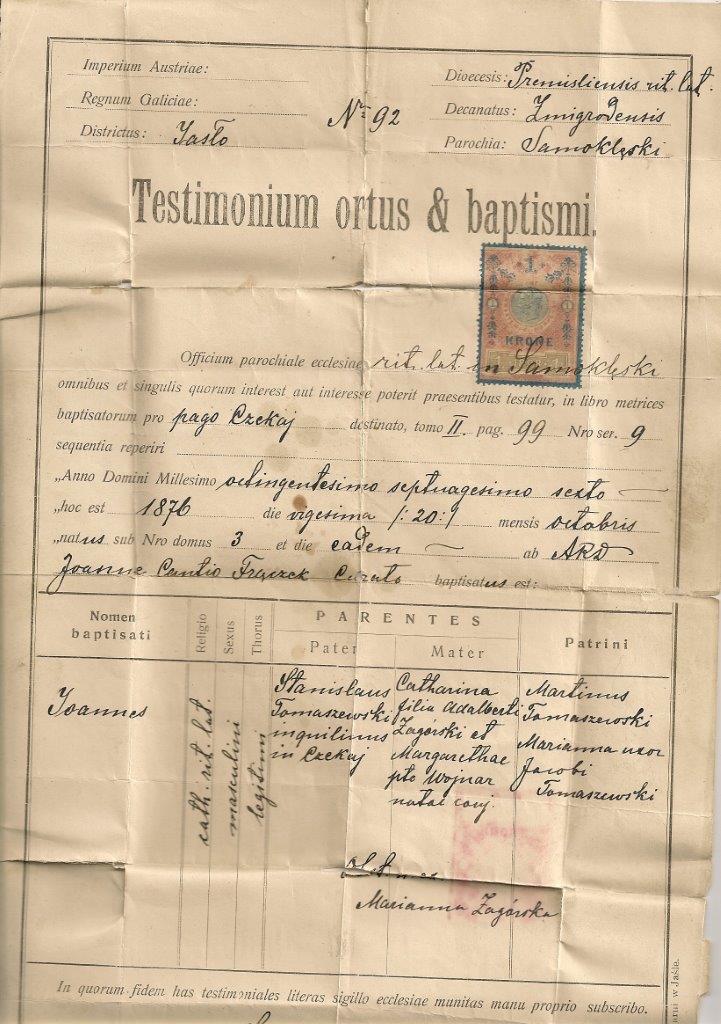 Imperium Austriae:
Regnum Galiciae:
Districtus: Jasło
Nº 92
Dioecesis: Premisliensis rit. lat.
Decanatus: Żmigrodensis
Parochia: Samoklęski
Testimonium ortus & baptismi.
1
KRONE
Officium parochiale ecclesiae rit. lat. in Samoklęski
omnibus et singulis quorum interest aut interesse poterit praesentibus testatur, in libro metrices
baptisatorum pro pago Czekaj destinato, tomo II. pag. 99 Nro ser. 9
sequentia reperiri
„Anno Domini Millesimo octingentesimo septuagesimo sexto
„hoc est 1876 die vigesima /:20:/ mensis octobris
„natus sub Nro domus 3 et die eadem ab ARD
Joanne Cantio Frączek Curato baptisatus est:
Nomen baptisati
Religio
Sexus
Thorus
PARENTES
Pater
Mater
Patrini
Joannes
cath. rit. lat.
masculini
legitimi
Stanislaus
Tomaszewski
inquilinus
in Czekaj
Catharina
filia Adalberti
Zagórski et
Margarethae
pto Wojnar
natae conj.
Martinus
Tomaszewski
Marianna uxor
Jacobi
Tomaszewski
Marianna Zagórska
In quorum fidem has testimoniales literas sigillo ecclesiae munitas manu proprio subscribo.
w Jaśle.